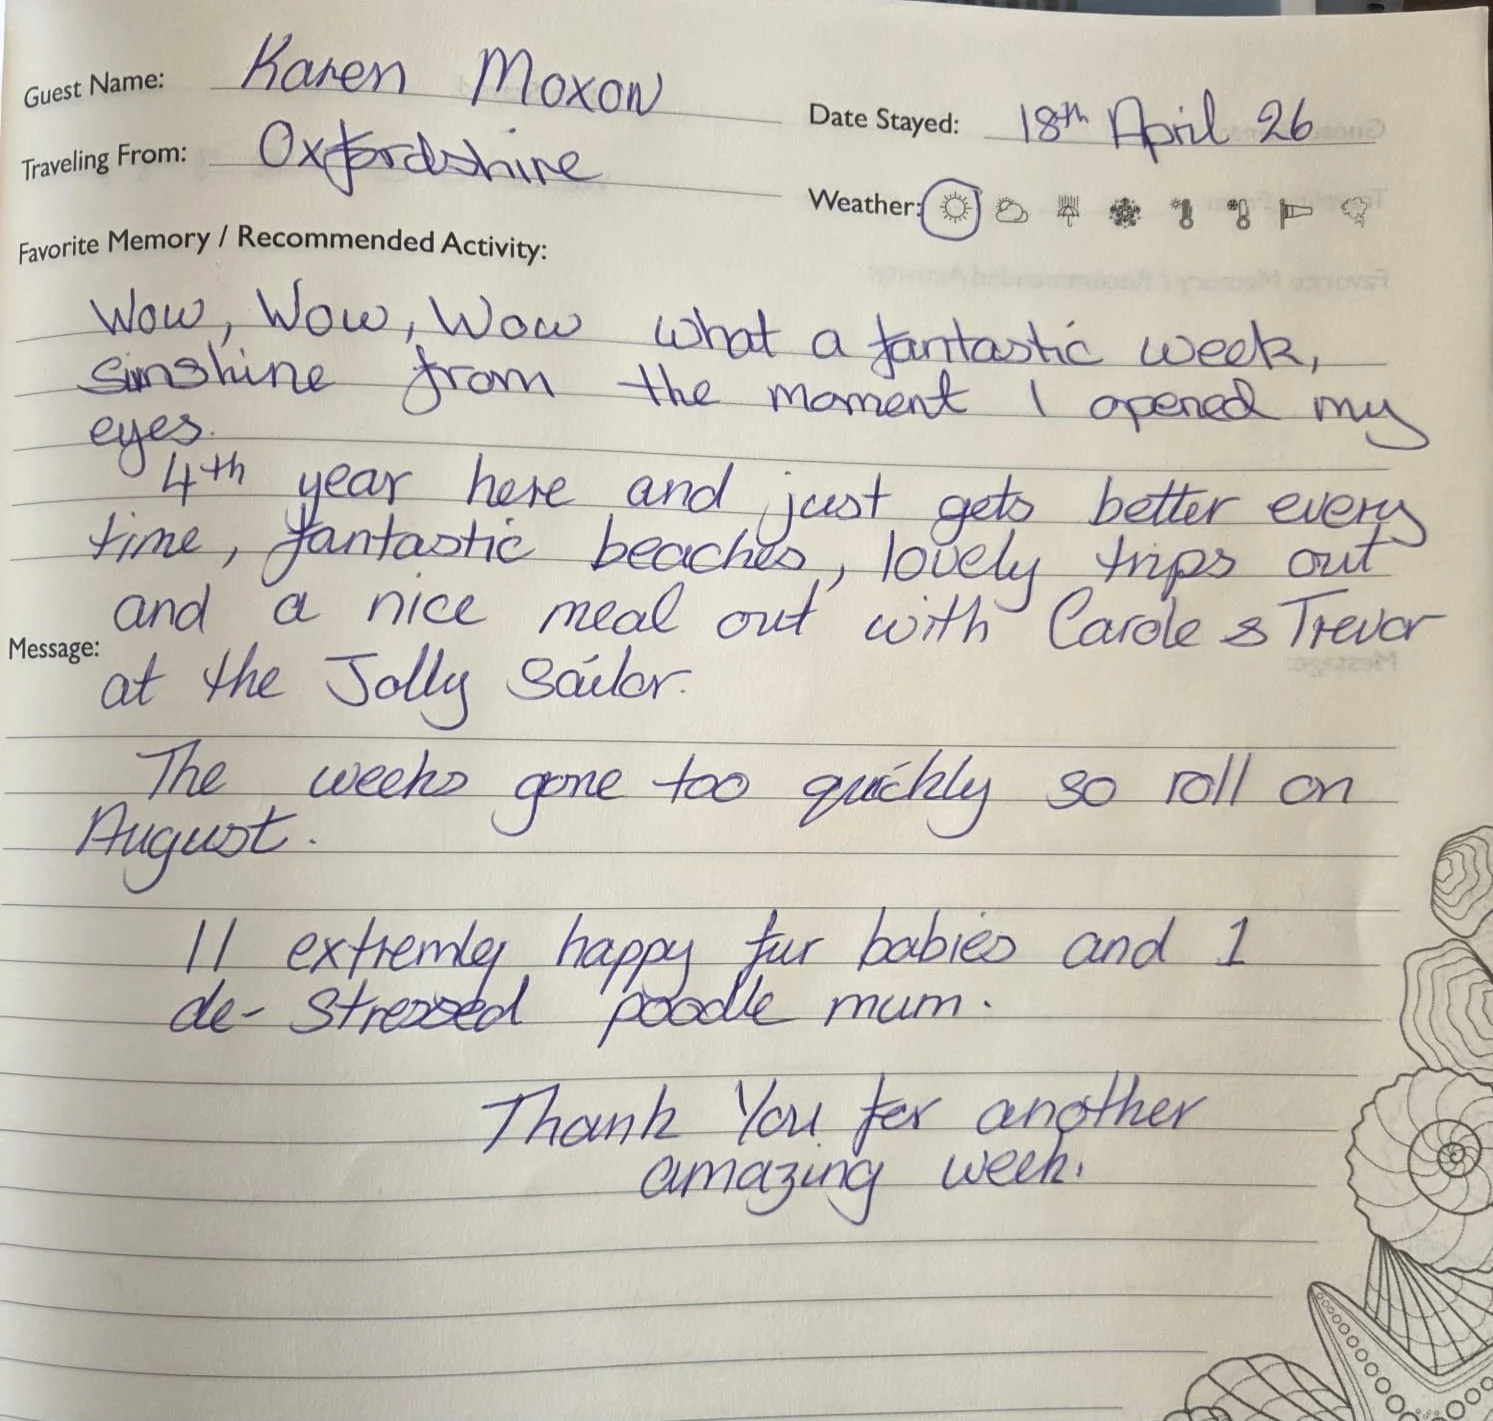 Guest Name: Karen Moxon
Date Stayed: 18th April 26
Traveling From: Oxfordshire
Weather:
Favorite Memory / Recommended Activity:
Wow, Wow, Wow what a fantastic week,
Sunshine from the moment I opened my
eyes.
4th year here and just gets better every
time, fantastic beaches, lovely trips out
and a nice meal out with Carole & Trevor
Message:
at the Jolly Sailor.
The weeks gone too quickly so roll on
August.
11 extremley happy fur babies and 1
de-stressed poodle mum.
Thank You for another
amazing week.